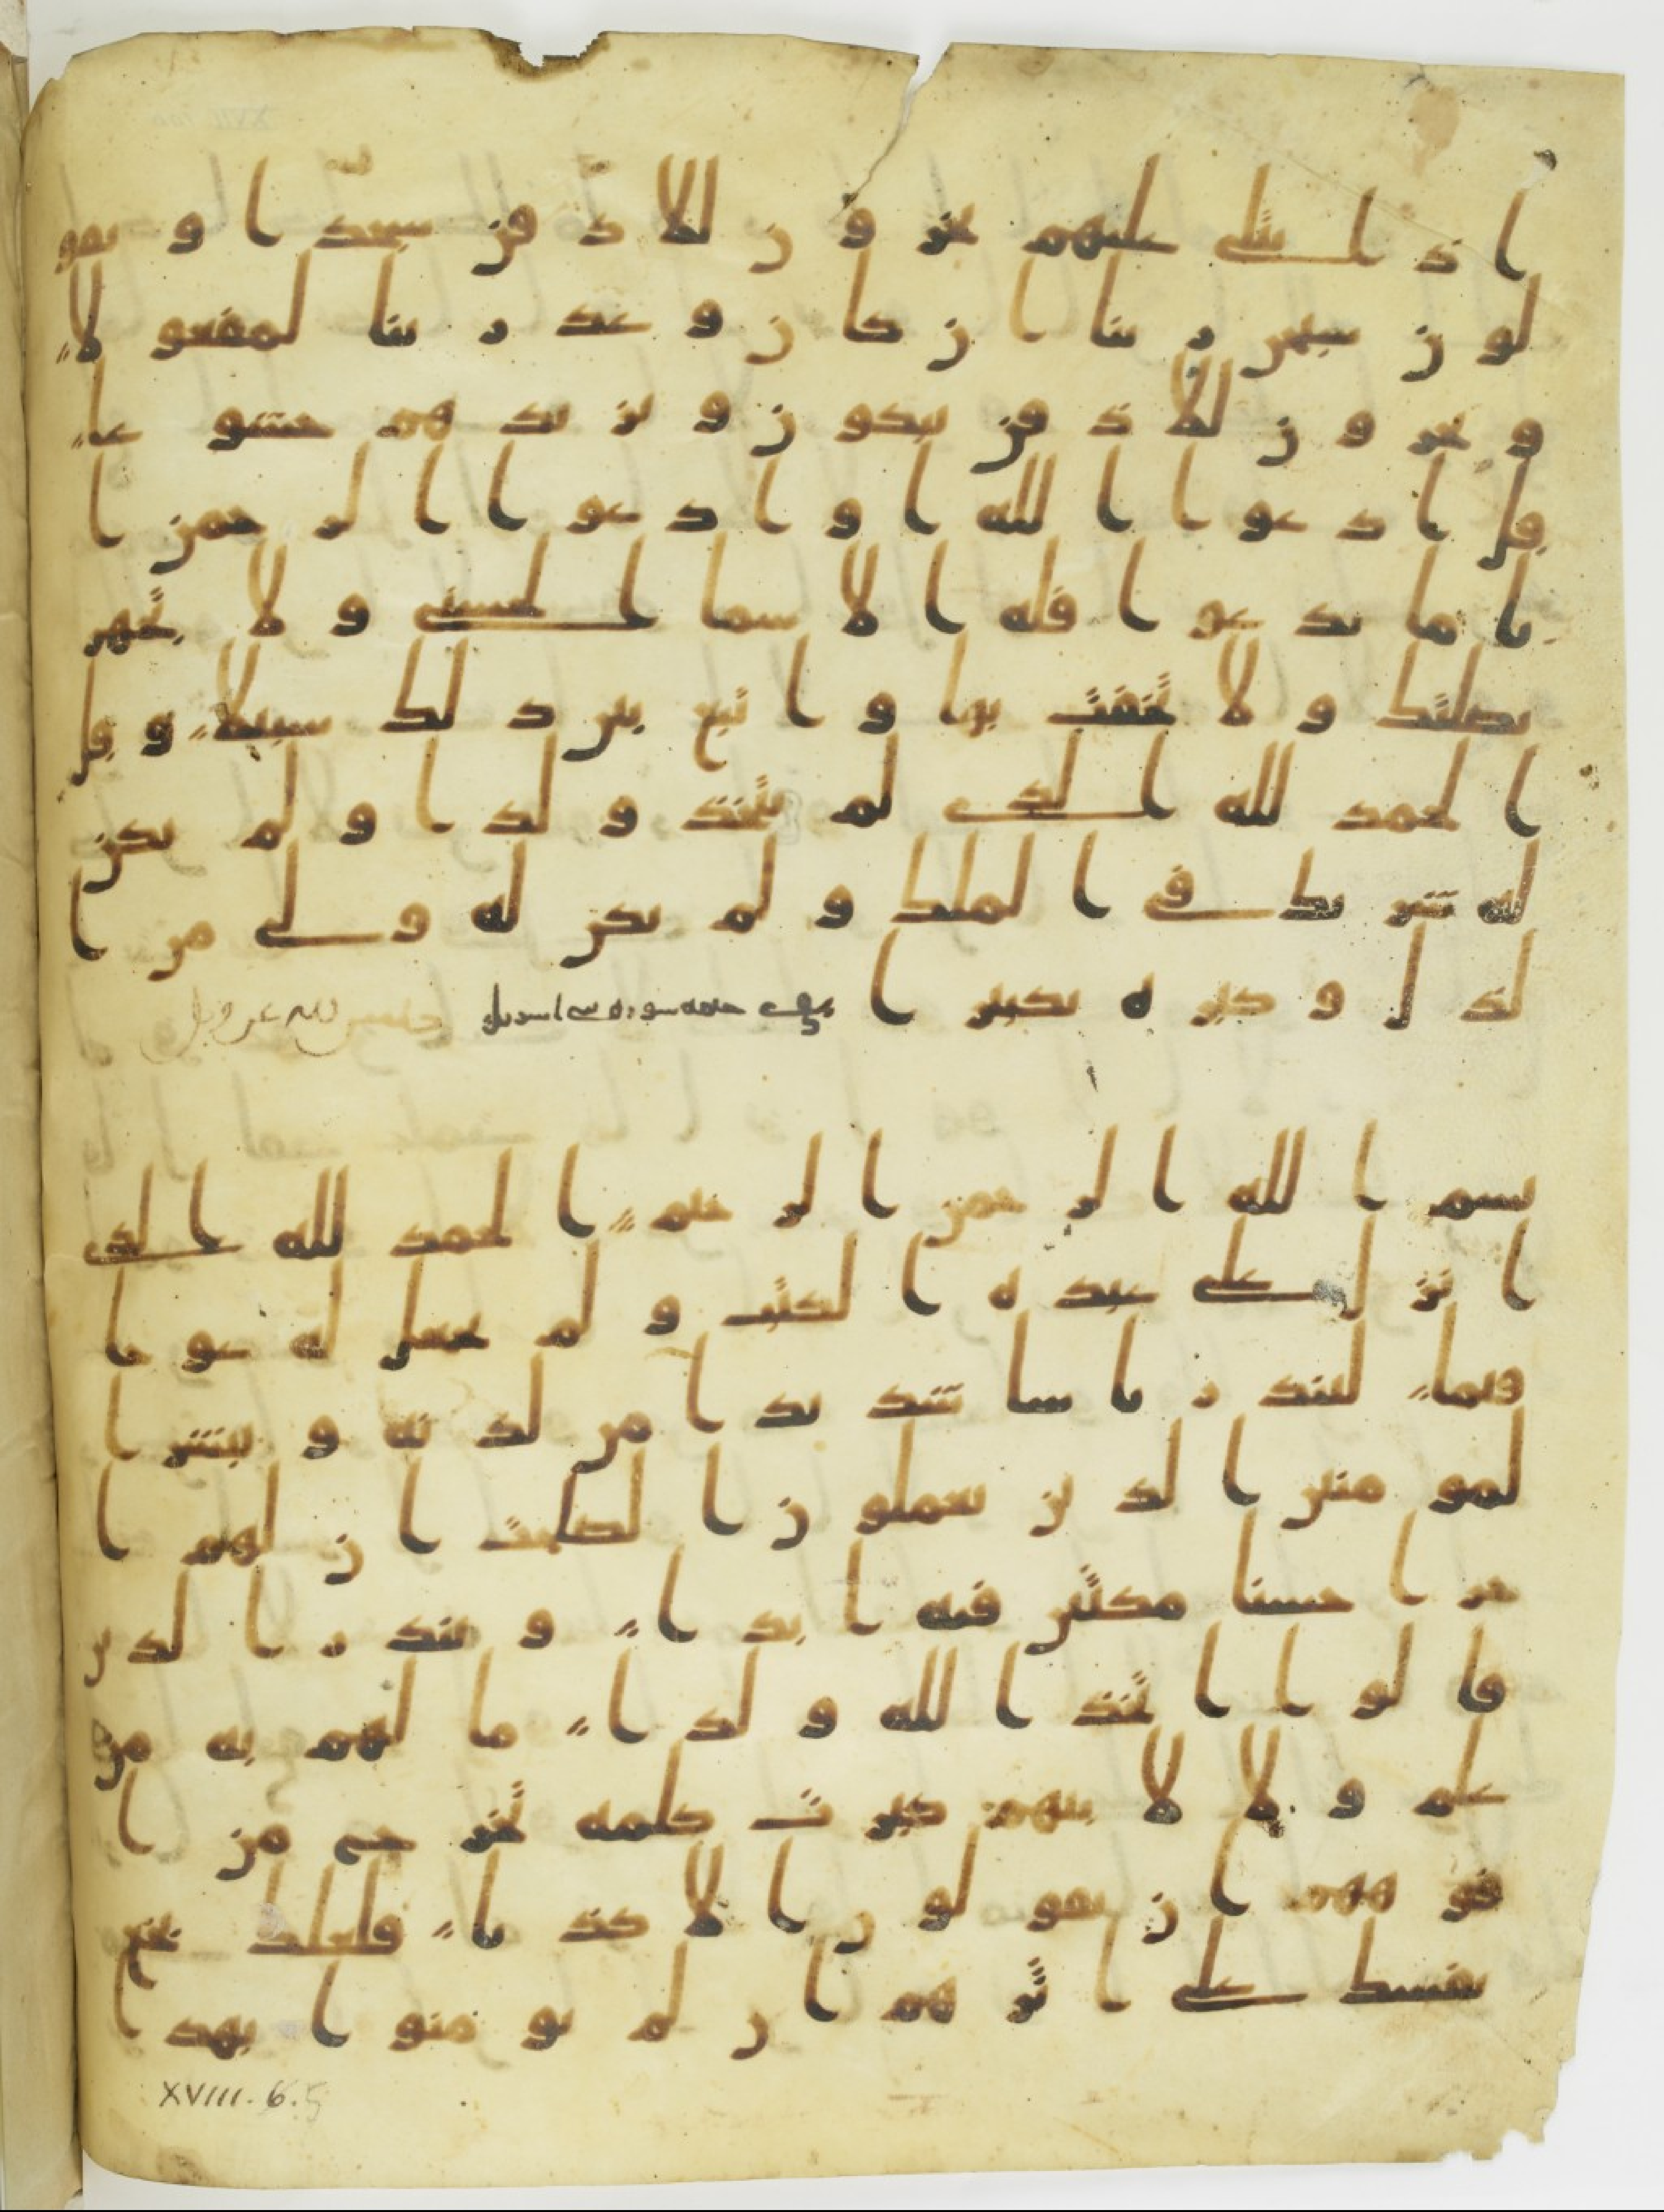 اذا يتلى عليهم يخرون للاذقن سجدا ويقو
لون سبحن ربنا ان كان وعد ربنا لمفعولا
ويخرون للاذقن يبكون ويزيدهم خشوعا
قل ادعوا الله او ادعوا الرحمن ا
يا ما تدعوا فله الاسما الحسنى ولا تجهر
بصلتك ولا تخفت بها وابتغ بين ذلك سبيلا وقل
الحمد لله الذى لم يتخذ ولدا ولم يكن
له شريك فى الملك ولم يكن له ولى من ا
لذل وكبره تكبيرا خاتمه سوره بنى اسرايل حبيس لله عز وجل
بسم الله الرحمن الرحيم الحمد لله الذى
انزل على عبده الكتب ولم يجعل له عوجا
قيما لينذر باسا شديدا من لدنه ويبشر ا
لمومنين الذين يعملون الصلحت ان لهم ا
جرا حسنا مكثين فيه ابدا وينذر الذين
قالوا اتخذ الله ولدا ما لهم به من
علم ولا لابيهم كبرت كلمه تخرج من ا
فوههم ان يقولون الا كذبا فلعلك بخع
نفسك على اثرهم ان لم يومنوا بهذا ا
XVIII. 6.